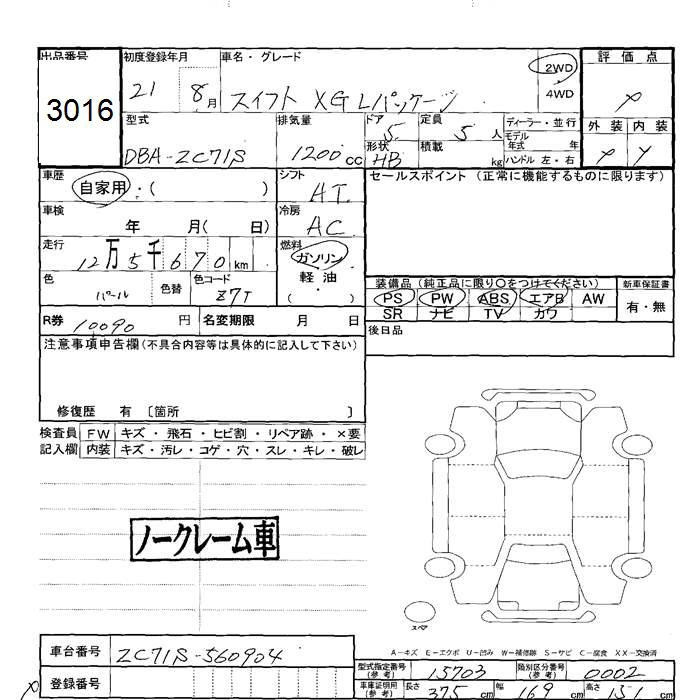 出品番号 初度登録年月 車名・グレード 評価点
3016 21 8月 スイフト XG Lパッケージ 2WD 4WD
型式 排気量 ドア 定員 ディーラー・並行 外装 内装
DBA-ZC71S 1200cc 5 5人 モデル年式 年
形状 HB 積載 kg ハンドル 左・右
車歴 自家用・( ) シフト AT セールスポイント (正常に機能するものに限ります)
車検 年 月( 日) 冷房 AC
走行 12万5千670km 燃料 ガソリン 軽油・( )
色 パール 色替 色コード Z7T
装備品 (純正品に限り○をつけてください) 新車保証書
PS PW ABS エアB AW 有・無
SR ナビ TV カワ
R券 10090円 名変期限 月 日 後日品
注意事項申告欄(不具合内容等は具体的に記入して下さい)
修復歴 有 〔箇所 〕
検査員 FW キズ・飛石・ヒビ割・リペア跡・×要
記入欄 内装 キズ・汚レ・コゲ・穴・スレ・キレ・破レ
ノークレーム車
スペア
A-キズ E-エクボ U-凹み W-補修跡 S-サビ C-腐食 XX-交換済
車台番号 ZC71S-560904
型式指定番号(参考) 15703 類別区分番号(参考) 0002
登録番号
車庫証明用(参考) 長さ 375cm 幅 169cm 高さ 151cm